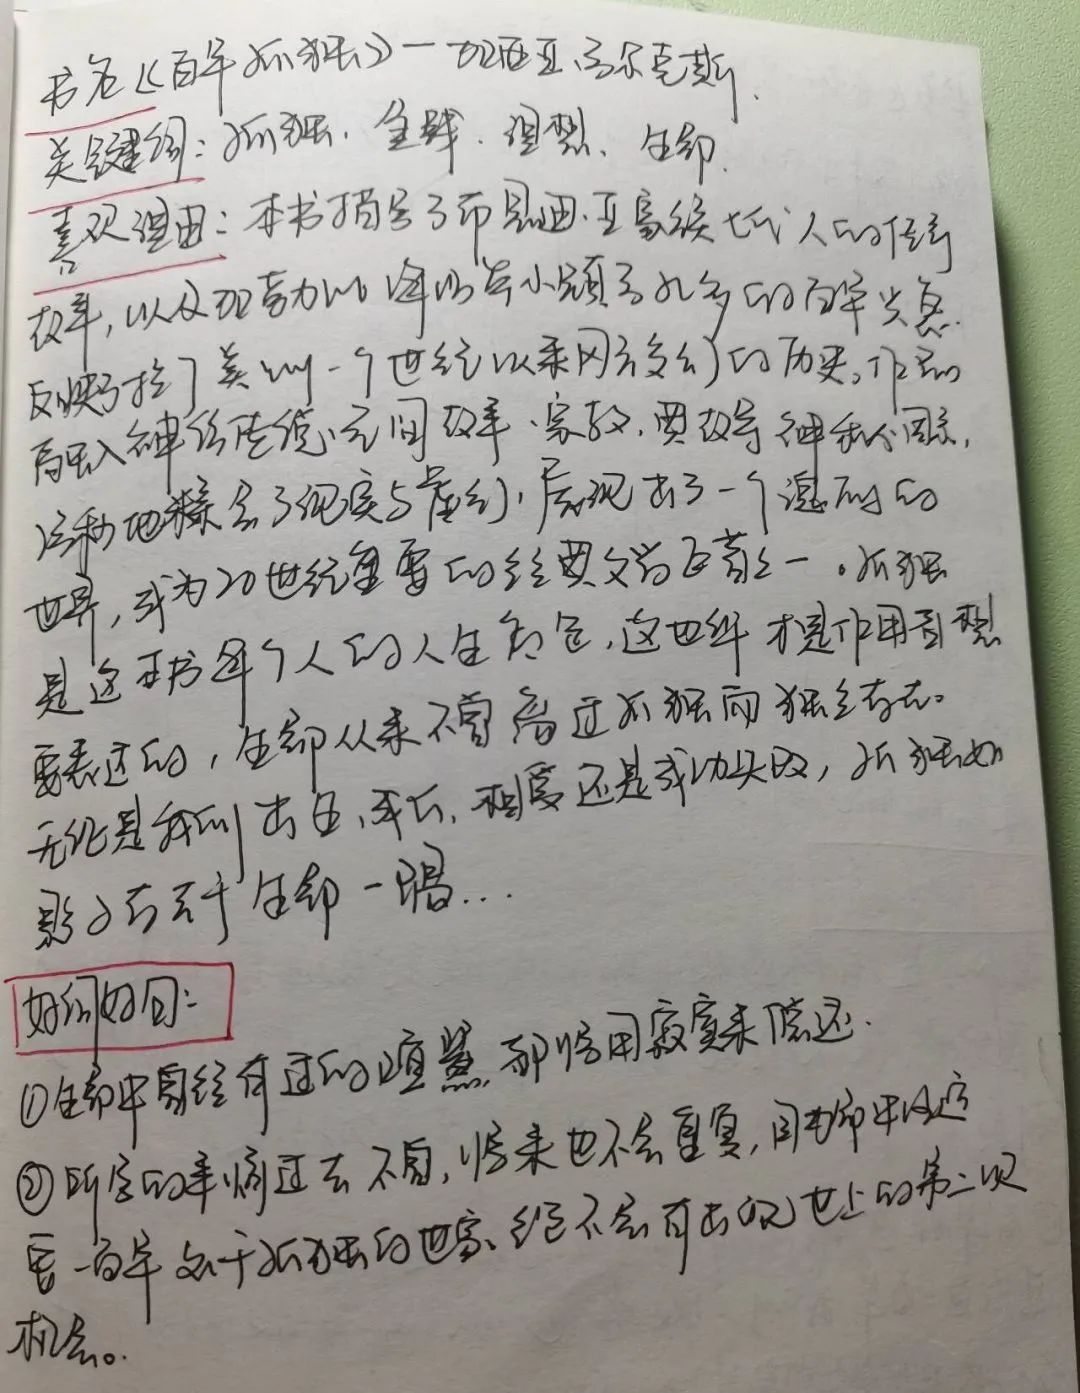 书名《百年孤独》—加西亚.马尔克斯.
关键词:孤独、宿命、理想、生命.
喜欢理由:本书描写了布恩迪亚家族七代人的传奇
故事,以及加勒比海沿岸小镇马孔多的百年兴衰
反映了拉丁美洲一个世纪以来风云变幻的历史。作品
融入神话传说、民间故事、宗教、典故等神秘因素,
巧妙地糅合了现实与虚幻,展现出了一个瑰丽的
世界,成为20世纪重要的经典文学巨著之一。孤独
是这本书每个人的人生命运,这也许才是作者
要表达的,生命从来不曾离过孤独而独立存在。
无论是我们出生、成长、相爱还是成功失败,孤独如
影子存在于生命一隅...
好词好句:
①生命中曾经有过的喧嚣,都将用寂寞来偿还.
②所写的事情过去不曾,将来也不会重复,因为命中注定
一百年处于孤独的世家、绝不会有出现世上的第二次
机会。